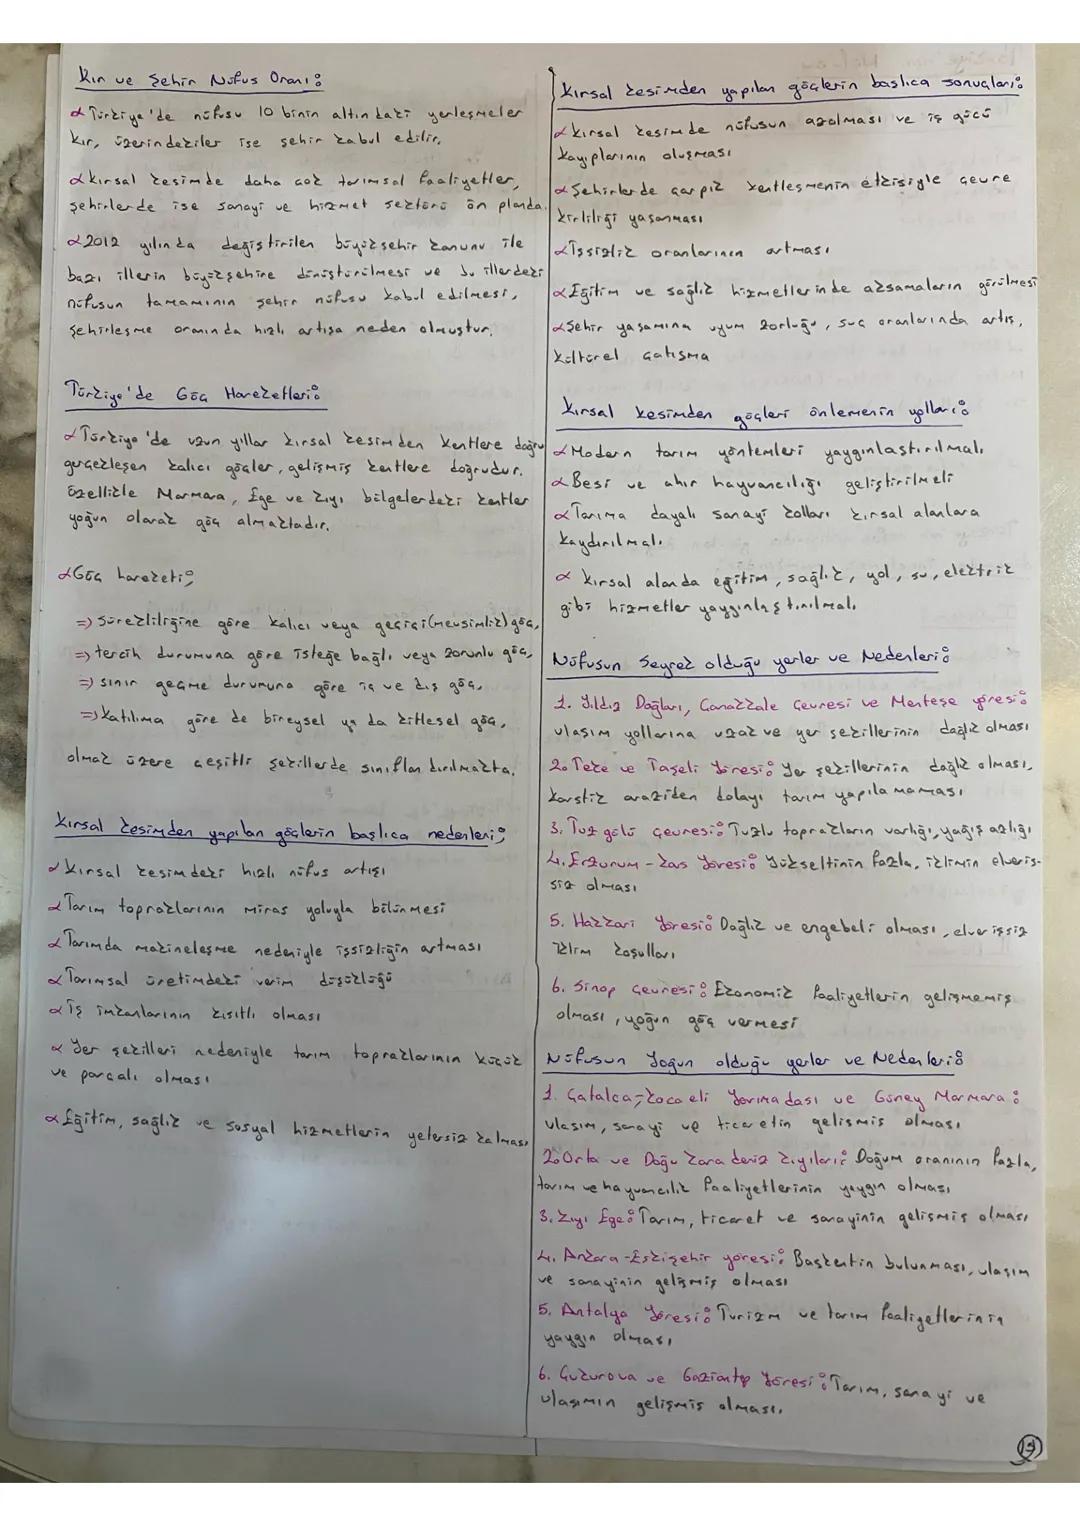 Kır ve Şehir Nüfus Oranı:
α Türkiye'de nüfusu 10 binin altındaki yerleşmeler
kır, üzerindekiler ise şehir kabul edilir.
α Kırsal kesimde daha çok tarımsal faaliyetler,
şehirlerde ise sanayi ve hizmet sektörü ön planda.
α 2012 yılında değiştirilen büyükşehir kanunu ile
bazı illerin büyükşehire dönüştürülmesi ve bu illerdeki
nüfusun tamamının şehir nüfusu kabul edilmesi,
şehirleşme oranında hızlı artışa neden olmuştur.
Türkiye'de Göç Hareketleri:
α Türkiye'de uzun yıllar kırsal kesimden kentlere doğru
gerçekleşen kalıcı göçler, gelişmiş kentlere doğrudur.
Özellikle Marmara, Ege ve kıyı bölgelerdeki kentler
yoğun olarak göç almaktadır.
α Göç hareketi;
=> Sürekliliğine göre kalıcı veya geçici (mevsimlik) göç,
=> tercih durumuna göre isteğe bağlı veya zorunlu göç,
=> sınır geçme durumuna göre iç ve dış göç,
=> katılıma göre de bireysel ya da kitlesel göç,
olmak üzere çeşitli şekillerde sınıflandırılmakta.
Kırsal kesimden yapılan göçlerin başlıca nedenleri;
α Kırsal kesimdeki hızlı nüfus artışı
α Tarım topraklarının miras yoluyla bölünmesi
α Tarımda makineleşme nedeniyle işsizliğin artması
α Tarımsal üretimdeki verim düşüklüğü
α İş imkanlarının kısıtlı olması
α Yer şekilleri nedeniyle tarım topraklarının küçük
ve parçalı olması
α Eğitim, sağlık ve sosyal hizmetlerin yetersiz kalması
Kırsal kesimden yapılan göçlerin başlıca sonuçları:
α Kırsal kesimde nüfusun azalması ve iş gücü
kayıplarının oluşması
α Şehirlerde çarpık kentleşmenin etkisiyle çevre
kirliliği yaşanması
α İşsizlik oranlarının artması
α Eğitim ve sağlık hizmetlerinde aksamaların görülmesi
α Şehir yaşamına uyum zorluğu, suç oranlarında artış,
kültürel çatışma
Kırsal kesimden göçleri önlemenin yolları:
α Modern tarım yöntemleri yaygınlaştırılmalı
α Besi ve ahır hayvancılığı geliştirilmeli
α Tarıma dayalı sanayi kolları kırsal alanlara
kaydırılmalı
α Kırsal alanda eğitim, sağlık, yol, su, elektrik
gibi hizmetler yaygınlaştırılmalı
Nüfusun Seyrek olduğu yerler ve Nedenleri:
1. Yıldız Dağları, Çanakkale Çevresi ve Menteşe yöresi:
ulaşım yollarına uzak ve yer şekillerinin dağlık olması
2. Teke ve Taşeli Yöresi: Yer şekillerinin dağlık olması,
karstik araziden dolayı tarım yapılamaması
3. Tuz gölü çevresi: Tuzlu toprakların varlığı, yağış azlığı
4. Erzurum - Kars Yöresi: Yükseltinin fazla, iklimin elveriş-
siz olması
5. Hakkari Yöresi: Dağlık ve engebeli olması, elverişsiz
iklim koşulları
6. Sinop Çevresi: Ekonomik faaliyetlerin gelişmemiş
olması, yoğun göç vermesi
Nüfusun Yoğun olduğu yerler ve Nedenleri:
1. Çatalca-Kocaeli Yarımadası ve Güney Marmara:
ulaşım, sanayi ve ticaretin gelişmiş olması
2. Orta ve Doğu Karadeniz kıyıları: Doğum oranının fazla,
tarım ve hayvancılık faaliyetlerinin yaygın olması
3. Kıyı Ege: Tarım, ticaret ve sanayinin gelişmiş olması
4. Ankara - Eskişehir yöresi: Başkentin bulunması, ulaşım
ve sanayinin gelişmiş olması
5. Antalya Yöresi: Turizm ve tarım faaliyetlerinin
yaygın olması
6. Çukurova ve Gaziantep Yöresi: Tarım, sanayi ve
ulaşımın gelişmiş olması.